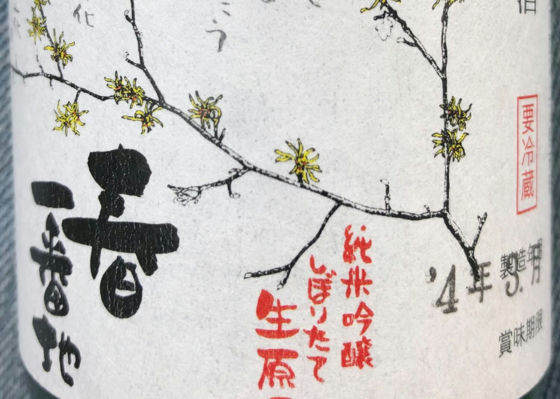 要冷蔵
製造年月
'4年 3.
賞味期限
純米吟醸
しぼりたて
生原
春
一番地